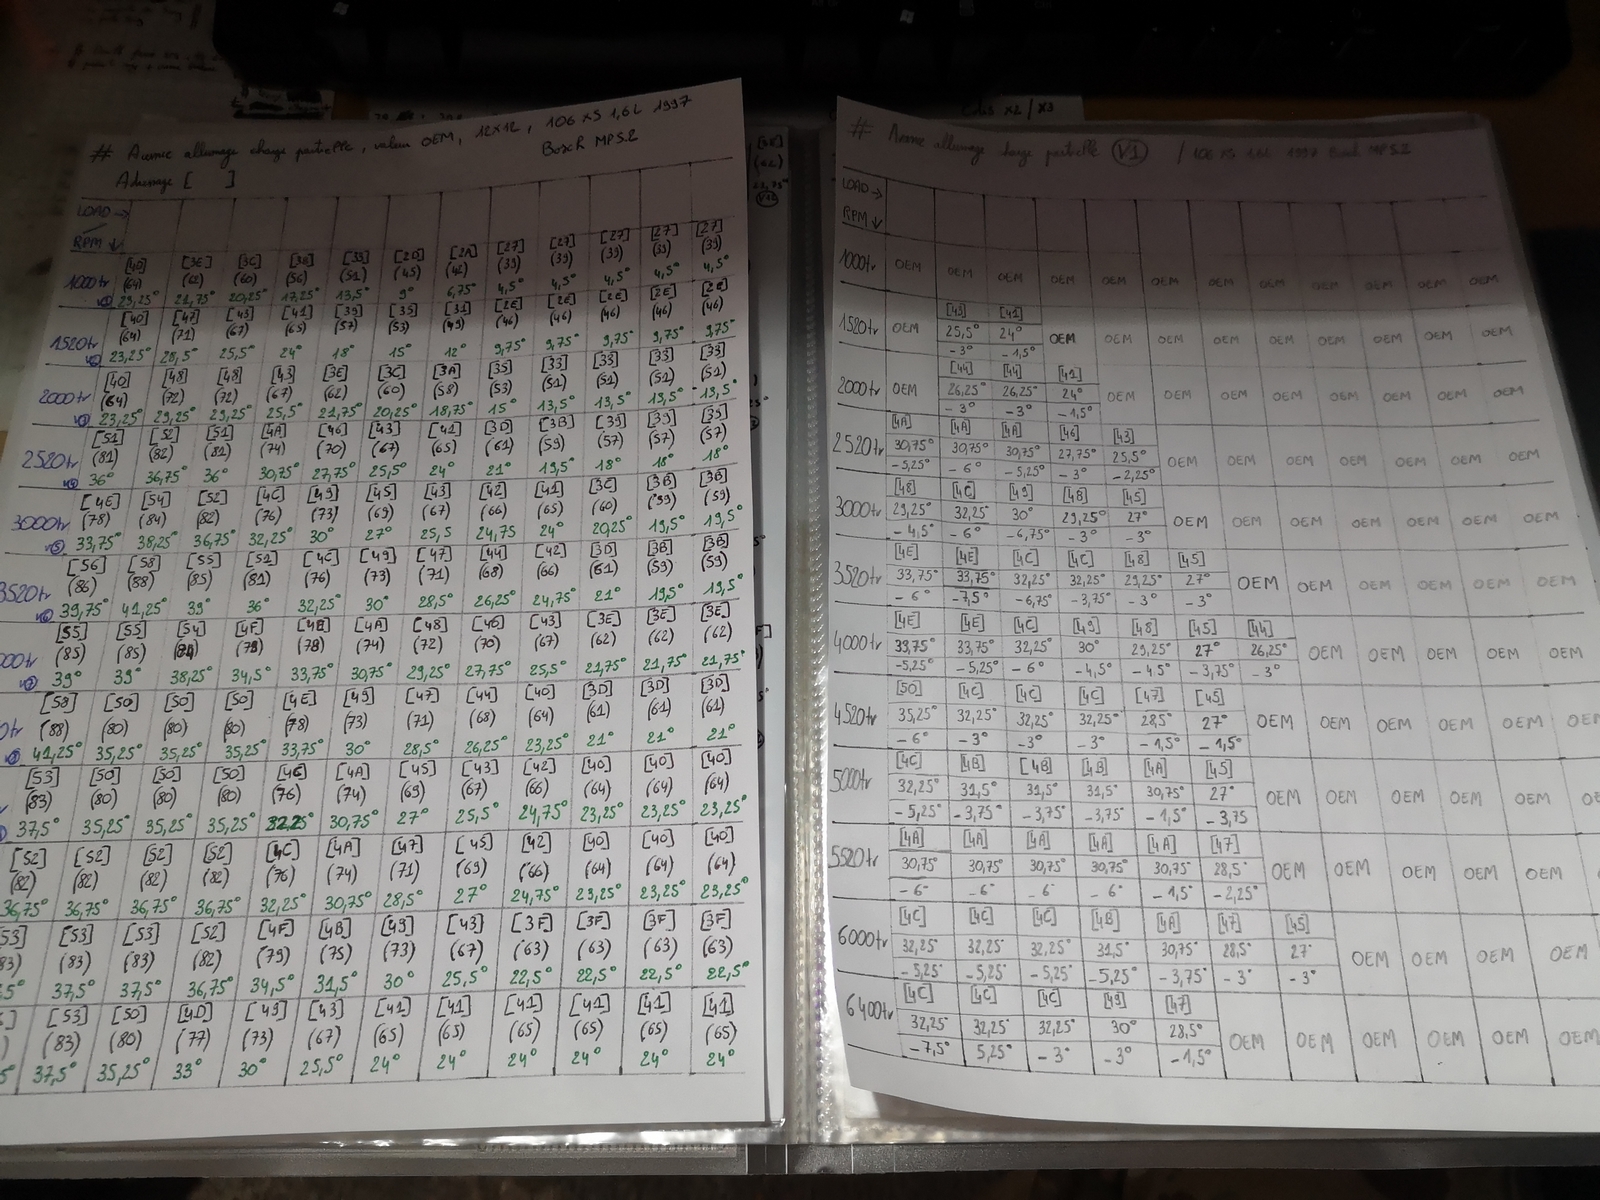 # Avance allumage charge partielle, valeur OEM, 12x12, 106 XS 1,6L 1997
Bosch MP5.2
Allumage [ ]
LOAD →
RPM ↓
1000tr [40] [3E] [3C] [38] [33] [2D] [2A] [27] [27] [27] [27] [27]
(64) (62) (60) (56) (51) (45) (42) (39) (39) (39) (39) (39)
23,25° 21,75° 20,25° 17,25° 13,5° 9° 6,75° 4,5° 4,5° 4,5° 4,5° 4,5°
1520tr [40] [47] [43] [41] [39] [35] [31] [2E] [2E] [2E] [2E] [2E]
(64) (71) (67) (65) (57) (53) (49) (46) (46) (46) (46) (46)
23,25° 28,5° 25,5° 24° 18° 15° 12° 9,75° 9,75° 9,75° 9,75° 9,75°
2000tr [40] [48] [48] [43] [3E] [3C] [3A] [35] [33] [33] [33] [33]
(64) (72) (72) (67) (62) (60) (58) (53) (51) (51) (51) (51)
23,25° 29,25° 29,25° 25,5° 21,75° 20,25° 18,75° 15° 13,5° 13,5° 13,5° 13,5°
2520tr [51] [52] [51] [4A] [46] [43] [41] [3D] [3B] [39] [39] [35]
(81) (82) (81) (74) (70) (67) (65) (61) (59) (57) (57) (57)
36° 36,75° 36° 30,75° 27,75° 25,5° 24° 21° 19,5° 18° 18° 18°
3000tr [4E] [54] [52] [4C] [49] [45] [43] [42] [41] [3C] [3B] [3B]
(78) (84) (82) (76) (73) (69) (67) (66) (65) (60) (59) (59)
33,75° 38,25° 36,75° 32,25° 30° 27° 25,5 24,75 24° 20,25° 19,5° 19,5°
3520tr [56] [58] [55] [51] [4C] [49] [47] [44] [42] [3D] [3B] [3B]
(86) (88) (85) (81) (76) (73) (71) (68) (66) (61) (59) (59)
39,75° 41,25° 39° 36° 32,25° 30° 28,5° 26,25° 24,75° 21° 19,5° 19,5°
000tr [55] [55] [54] [4F] [4E] [4A] [48] [46] [43] [3E] [3E] [3E]
(85) (85) (84) (79) (78) (74) (72) (70) (67) (62) (62) (62)
39° 39° 38,25° 34,5° 33,75° 30,75° 29,25° 27,75° 25,5° 21,75° 21,75° 21,75°
0tr [58] [50] [50] [50] [4E] [49] [47] [44] [40] [3D] [3D] [3D]
(88) (80) (80) (80) (78) (73) (71) (68) (64) (61) (61) (61)
41,25° 35,25° 35,25° 35,25° 33,75° 30° 28,5° 26,25° 23,25° 21° 21° 21°
[53] [50] [50] [50] [4C] [4A] [45] [43] [42] [40] [40] [40]
(83) (80) (80) (80) (76) (74) (69) (67) (66) (64) (64) (64)
37,5° 35,25° 35,25° 35,25° 32,25° 30,75° 27° 25,5° 24,75° 23,25° 23,25° 23,25°
[52] [52] [52] [52] [4C] [4A] [47] [45] [42] [40] [40] [40]
(82) (82) (82) (82) (76) (74) (71) (69) (66) (64) (64) (64)
36,75° 36,75° 36,75° 36,75° 32,25° 30,75° 28,5° 27° 24,75° 23,25° 23,25° 23,25°
53] [53] [53] [52] [4F] [4B] [49] [43] [3F] [3F] [3F] [3F]
83) (83) (83) (82) (79) (75) (73) (67) (63) (63) (63) (63)
,5° 37,5° 37,5° 36,75° 34,5° 31,5° 30° 25,5° 22,5° 22,5° 22,5° 22,5°
] [53] [50] [4D] [49] [43] [41] [41] [41] [41] [41] [41]
) (83) (80) (77) (73) (67) (65) (65) (65) (65) (65) (65)
5° 37,5° 35,25° 33° 30° 25,5° 24° 24° 24° 24° 24° 24°
# Avance allumage charge partielle V1 / 106 XS 1,6L 1997 Bosch MP5.2
LOAD →
RPM ↓
1000tr OEM OEM OEM OEM OEM OEM OEM OEM OEM OEM OEM OEM
[43] [41]
1520tr OEM 25,5° 24° OEM OEM OEM OEM OEM OEM OEM OEM OEM
-3° -1,5°
[44] [44] [41]
2000tr OEM 26,25° 26,25° 24° OEM OEM OEM OEM OEM OEM OEM OEM
-3° -3° -1,5°
[4A] [4A] [4A] [46] [43]
2520tr 30,75° 30,75° 30,75° 27,75° 25,5° OEM OEM OEM OEM OEM OEM OEM
-5,25° -6° -5,25° -3° -2,25°
[48] [4C] [49] [48] [45]
3000tr 29,25° 32,25° 30° 29,25° 27° OEM OEM OEM OEM OEM OEM OEM
-4,5° -6° -6,75° -3° -3°
[4E] [4E] [4C] [4C] [48] [45]
3520tr 33,75° 33,75° 32,25° 32,25° 29,25° 27° OEM OEM OEM OEM OEM OEM
-6° -7,5° -6,75° -3,75° -3° -3°
[4E] [4E] [4C] [49] [48] [45] [44]
4000tr 33,75° 33,75° 32,25° 30° 29,25° 27° 26,25° OEM OEM OEM OEM OEM
-5,25° -5,25° -6° -4,5° -4,5° -3,75° -3°
[50] [4C] [4C] [4C] [47] [45]
4520tr 35,25° 32,25° 32,25° 32,25° 28,5° 27° OEM OEM OEM OEM OEM OEM
-6° -3° -3° -3° -1,5° -1,5°
[4C] [4B] [4B] [4B] [4A] [45]
5000tr 32,25° 31,5° 31,5° 31,5° 30,75° 27° OEM OEM OEM OEM OEM
-5,25° -3,75° -3,75° -3,75° -1,5° -3,75
[4A] [4A] [4A] [4A] [4A] [47]
5520tr 30,75° 30,75° 30,75° 30,75° 30,75° 28,5° OEM OEM OEM OEM OEM
-6° -6° -6° -6° -1,5° -2,25°
[4C] [4C] [4C] [4B] [4A] [47] [45]
6000tr 32,25° 32,25° 32,25° 31,5° 30,75° 28,5° 27° OEM OEM OEM OEM
-5,25° -5,25° -5,25° -5,25° -3,75° -3° -3°
[4C] [4C] [4C] [49] [47]
6400tr 32,25 32,25° 32,25° 30° 28,5° OEM OEM OEM OEM OEM OEM
-7,5° 5,25° -3° -3° -1,5°